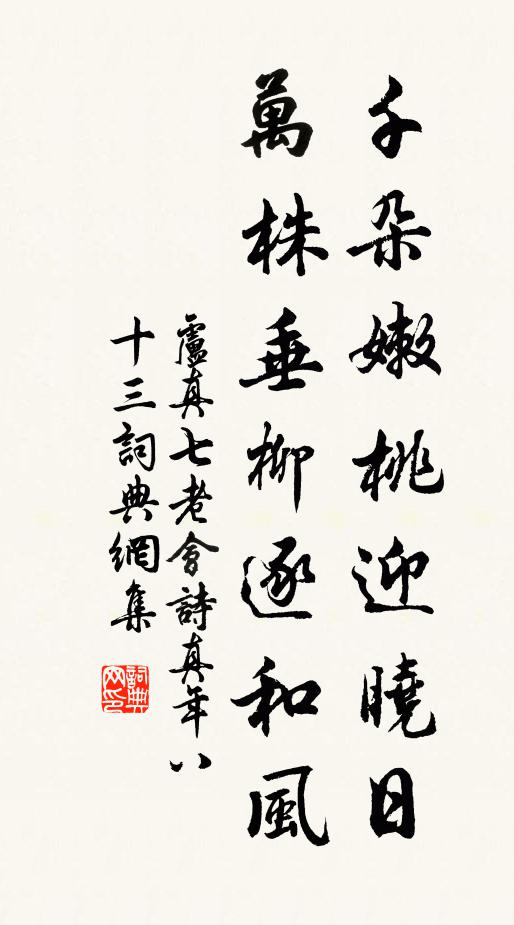 千朵嫩桃迎曉日
萬株垂柳逐和風
盧真七老會詩真年八
十三詞典網集
詞典
网印